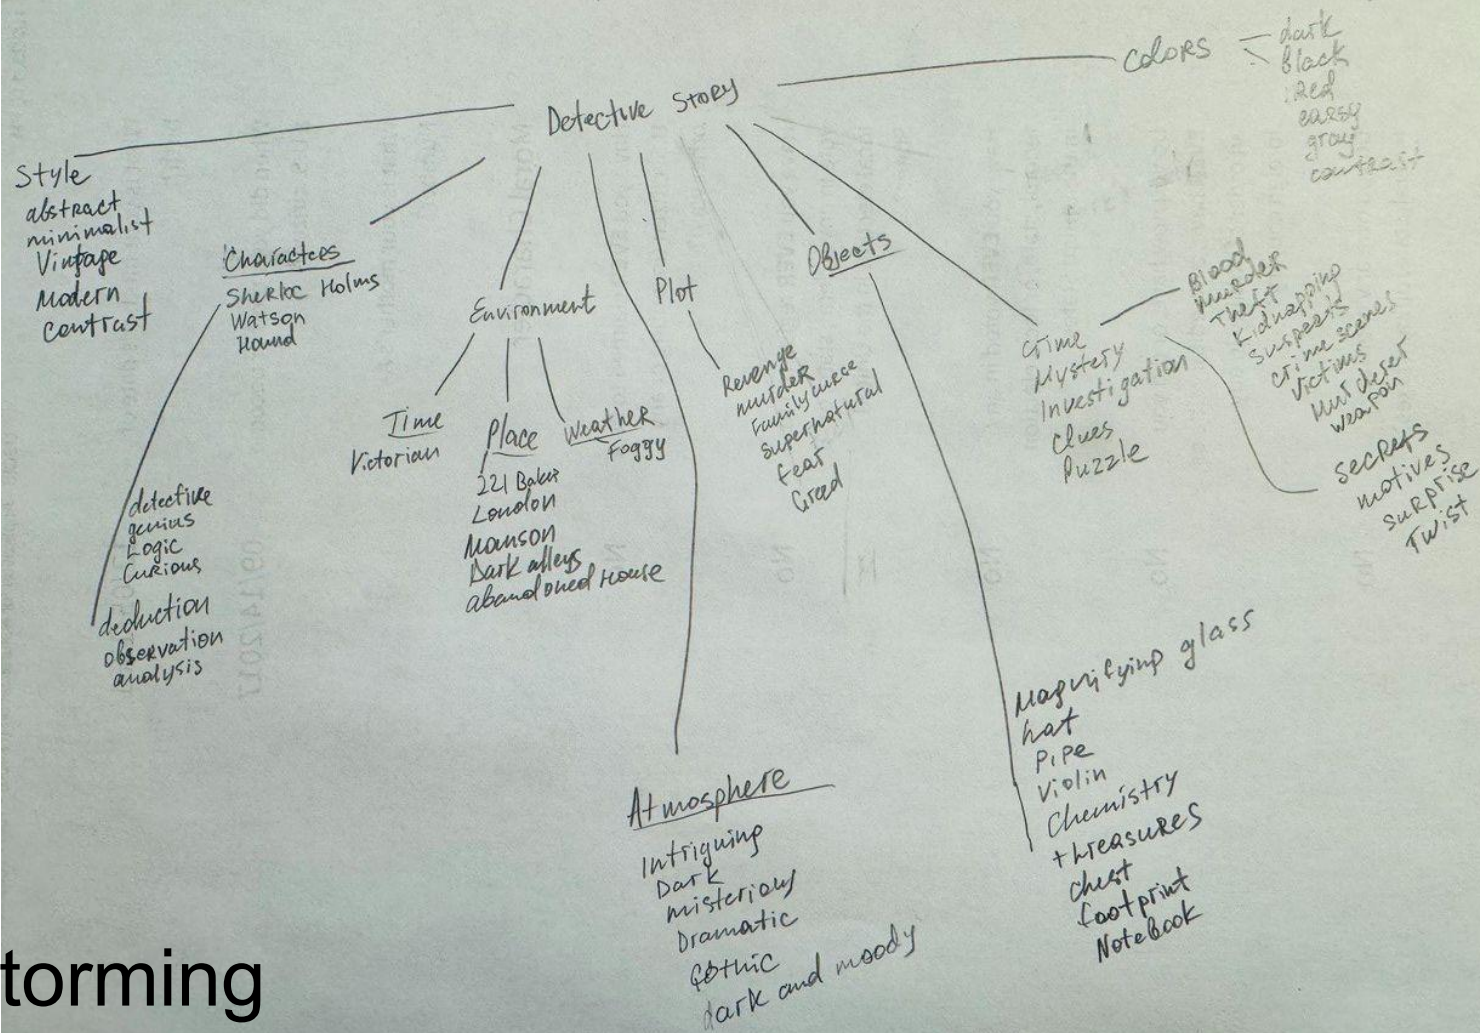 Detective Story
Colors
dark
black
Red
gray
contrast
Style
abstract
minimalist
Vintage
Modern
contrast
Characters
Sherloc Holms
Watson
Hound
detective
genius
Logic
Curious
deduction
observation
analysis
Environment
Time
Victorian
Place
221 Baker
London
Manson
Dark alleys
abandoned House
Weather
Foggy
Plot
Revenge
murder
Family curse
supernatural
fear
Greed
Objects
Magnifying glass
hat
Pipe
Violin
Chemistry
threasures
chest
footprint
Notebook
Crime
Mystery
Investigation
Clues
Puzzle
Blood
murder
Theft
Kidnapping
Suspects
crime scenes
Victims
Murderer
weapon
secrets
motives
surprise
Twist
Atmosphere
Intriguing
Dark
misteriouy
Dramatic
Gothic
dark and moody
torming